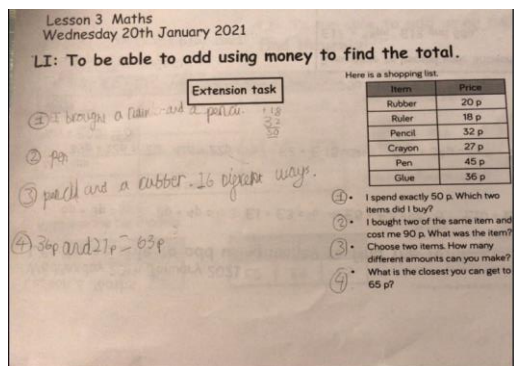 Lesson 3 Maths
Wednesday 20th January 2021
LI: To be able to add using money to find the total.
Extension task
① I brought a ruler and a pencil.
18
32
50
② pen
③ pencil and a rubber. 16 different ways.
④ 36p and 27p = 63p
Here is a shopping list.
Item Price
Rubber 20 p
Ruler 18 p
Pencil 32 p
Crayon 27 p
Pen 45 p
Glue 36 p
① • I spend exactly 50 p. Which two
items did I buy?
② • I bought two of the same item and
cost me 90 p. What was the item?
③ • Choose two items. How many
different amounts can you make?
④ • What is the closest you can get to
65 p?